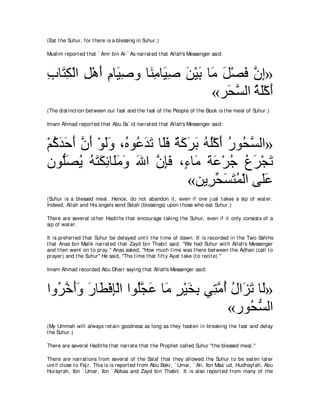 (Eat the Suhur, for there is a blessing in Suhur.)
Muslim reported that `Amr bin Al-`As narrated that Allah's Messenger said:
«إِنَّ فَصْلَ مَا بَيْنَ صِيَامِنَا وَصِيَامِ أَهْلِ الْكِتَابِ
أَكْلَةُ السَّحَر»
(The distinction between our fast and the fast of the People of the Book is the meal of Suhur.)
Imam Ahmad reported that Abu Sa`id narrated that Allah's Messenger said:
«السَّحُورُ أَكْلُهُ بَرَكَةٌ فَلَا تَدَعُوهُ، وَلَوْ أَنَّ أَحَدَكُمْ
تَجَرَّعَ جُرْعَةَ مَاءٍ، فَإِنَّ اللهَ وَمَلَائِكَتَهُ يُصَلُّونَ
عَلَى الْمُتَسَحِّرِينَ»
(Suhur is a blessed meal. Hence, do not abandon it, even if one just takes a sip of water.
Indeed, Allah and His angels send Salah (blessings) upon those who eat Suhur.)
There are several other Hadiths that encourage taking the Suhur, even if it only consists of a
sip of water.
It is preferred that Suhur be delayed until the time of dawn. It is recorded in the Two Sahihs
that Anas bin Malik narrated that Zayd bin Thabit said, "We had Suhur with Allah's Messenger
and then went on to pray." Anas asked, "How much time was there between the Adhan (call to
prayer) and the Suhur" He said, "The time that fifty Ayat take (to recite)."
Imam Ahmad recorded Abu Dharr saying that Allah's Messenger said:
«لَا تَزَالُ أُمَّتِي بِخَيْرٍ مَا عَجَّلُوا الْإِفْطَارَ وَأَخَّرُوا
السُّحُور»
(My Ummah will always retain goodness as long as they hasten in breaking the fast and delay
the Suhur.)
There are several Hadiths that narrate that the Prophet called Suhur "the blessed meal."
There are narrations from several of the Salaf that they allowed the Suhur to be eaten later
until close to Fajr. This is reported from Abu Bakr, `Umar, `Ali, Ibn Mas`ud, Hudhayfah, Abu
Hurayrah, Ibn `Umar, Ibn `Abbas and Zayd bin Thabit. It is also reported from many of the